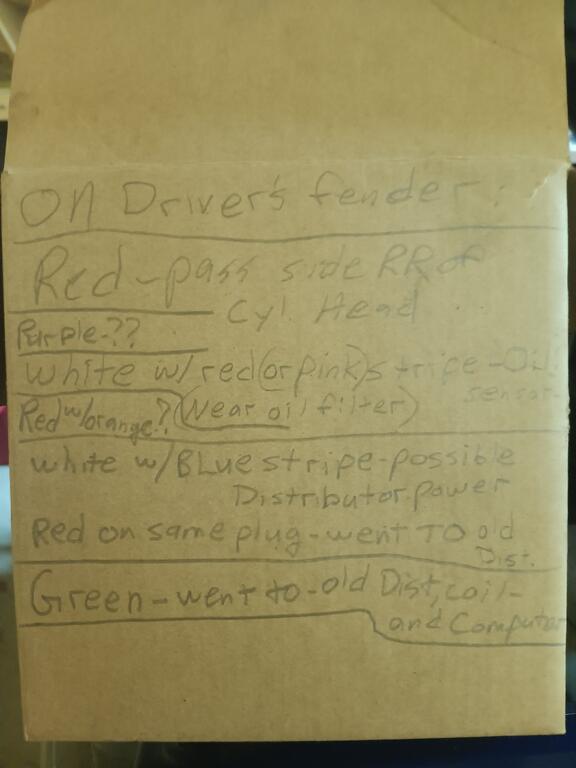 ON Driver's fender:
Red-pass side RR of
Cyl. Head
Purple-??
White w/ red (or pink) stripe-Oil
sensor-
Red w/orange? (Near oil filter)
White w/BLue stripe-possible
Distributor power
Red on same plug-went TO old
Dist.
Green-went to-old Dist, coil-
and Computer